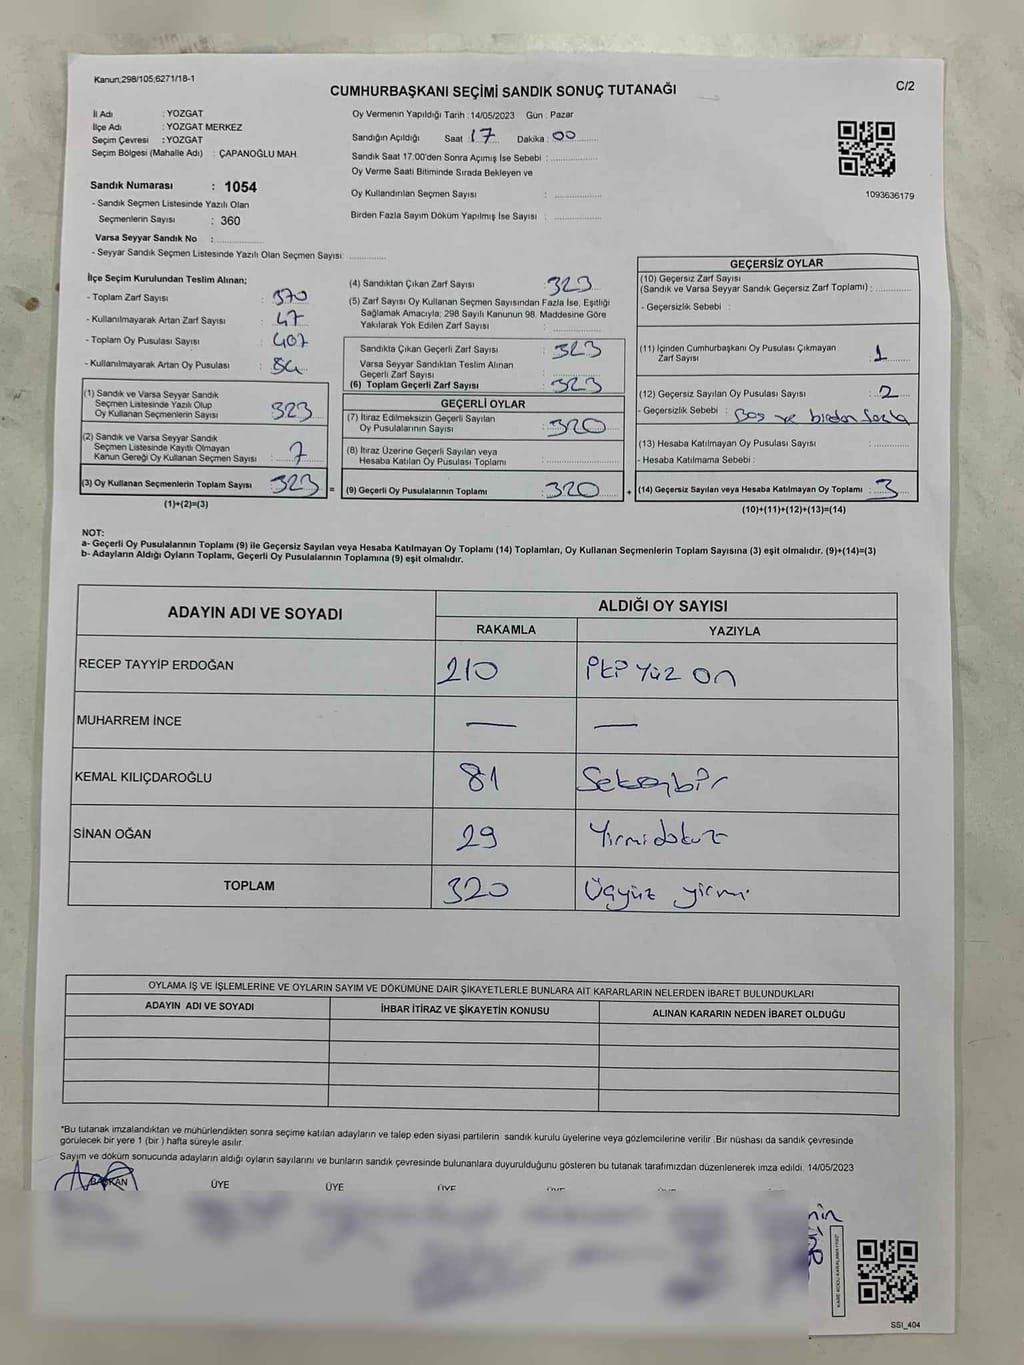 Kanun;298/105,6271/18-1
CUMHURBAŞKANI SEÇİMİ SANDIK SONUÇ TUTANAĞI
C/2
İl Adı : YOZGAT
İlçe Adı : YOZGAT MERKEZ
Seçim Çevresi : YOZGAT
Seçim Bölgesi (Mahalle Adı) : ÇAPANOĞLU MAH.
Sandık Numarası : 1054
- Sandık Seçmen Listesinde Yazılı Olan
Seçmenlerin Sayısı : 360
Varsa Seyyar Sandık No :
- Seyyar Sandık Seçmen Listesinde Yazılı Olan Seçmen Sayısı:
Oy Vermenin Yapıldığı Tarih : 14/05/2023 Gün : Pazar
Sandığın Açıldığı Saat 17 Dakika : 00
Sandık Saat 17.00'den Sonra Açımış İse Sebebi :
Oy Verme Saati Bitiminde Sırada Bekleyen ve
Oy Kullandırılan Seçmen Sayısı :
Birden Fazla Sayım Döküm Yapılmış İse Sayısı :
1093636179
İlçe Seçim Kurulundan Teslim Alınan;
- Toplam Zarf Sayısı : 370
- Kullanılmayarak Artan Zarf Sayısı : 47
- Toplam Oy Pusulası Sayısı : 407
- Kullanılmayarak Artan Oy Pusulası : 84
(1) Sandık ve Varsa Seyyar Sandık
Seçmen Listesinde Yazılı Olup
Oy Kullanan Seçmenlerin Sayısı : 323
(2) Sandık ve Varsa Seyyar Sandık
Seçmen Listesinde Kayıtlı Olmayan
Kanun Gereği Oy Kullanan Seçmen Sayısı : 7
(3) Oy Kullanan Seçmenlerin Toplam Sayısı : 323 =
(1)+(2)=(3)
(4) Sandıktan Çıkan Zarf Sayısı : 323
(5) Zarf Sayısı Oy Kullanan Seçmen Sayısından Fazla İse, Eşitliği
Sağlamak Amacıyla; 298 Sayılı Kanunun 98. Maddesine Göre
Yakılarak Yok Edilen Zarf Sayısı :
Sandıkta Çıkan Geçerli Zarf Sayısı : 323
Varsa Seyyar Sandıktan Teslim Alınan
Geçerli Zarf Sayısı :
(6) Toplam Geçerli Zarf Sayısı : 323
GEÇERLİ OYLAR
(7) İtiraz Edilmeksizin Geçerli Sayılan
Oy Pusulalarının Sayısı : 320
(8) İtiraz Üzerine Geçerli Sayılan veya
Hesaba Katılan Oy Pusulası Toplamı :
(9) Geçerli Oy Pusulalarının Toplamı : 320 +
GEÇERSİZ OYLAR
(10) Geçersiz Zarf Sayısı
(Sandık ve Varsa Seyyar Sandık Geçersiz Zarf Toplamı) :
- Geçersizlik Sebebi :
(11) İçinden Cumhurbaşkanı Oy Pusulası Çıkmayan
Zarf Sayısı : 1
(12) Geçersiz Sayılan Oy Pusulası Sayısı : 2
- Geçersizlik Sebebi : Boş ve birden fazla
(13) Hesaba Katılmayan Oy Pusulası Sayısı :
- Hesaba Katılmama Sebebi :
(14) Geçersiz Sayılan veya Hesaba Katılmayan Oy Toplamı : 3
(10)+(11)+(12)+(13)=(14)
NOT:
a- Geçerli Oy Pusulalarının Toplamı (9) ile Geçersiz Sayılan veya Hesaba Katılmayan Oy Toplamı (14) Toplamları, Oy Kullanan Seçmenlerin Toplam Sayısına (3) eşit olmalıdır. (9)+(14)=(3)
b- Adayların Aldığı Oyların Toplamı, Geçerli Oy Pusulalarının Toplamına (9) eşit olmalıdır.
ADAYIN ADI VE SOYADI
ALDIĞI OY SAYISI
RAKAMLA YAZIYLA
RECEP TAYYİP ERDOĞAN 210 İki Yüz On
MUHARREM İNCE — —
KEMAL KILIÇDAROĞLU 81 Seksenbir
SİNAN OĞAN 29 Yirmidokuz
TOPLAM 320 Üçyüz yirmi
OYLAMA İŞ VE İŞLEMLERİNE VE OYLARIN SAYIM VE DÖKÜMÜNE DAİR ŞİKAYETLERLE BUNLARA AİT KARARLARIN NELERDEN İBARET BULUNDUKLARI
ADAYIN ADI VE SOYADI İHBAR İTİRAZ VE ŞİKAYETİN KONUSU ALINAN KARARIN NEDEN İBARET OLDUĞU
*Bu tutanak imzalandıktan ve mühürlendikten sonra seçime katılan adayların ve talep eden siyasi partilerin sandık kurulu üyelerine veya gözlemcilerine verilir .Bir nüshası da sandık çevresinde
görülecek bir yere 1 (bir ) hafta süreyle asılır.
Sayım ve döküm sonucunda adayların aldığı oyların sayılarını ve bunların sandık çevresinde bulunanlara duyurulduğunu gösteren bu tutanak tarafımızdan düzenlenerek imza edildi. 14/05/2023
BAŞKAN ÜYE ÜYE ÜYE
SSI_404